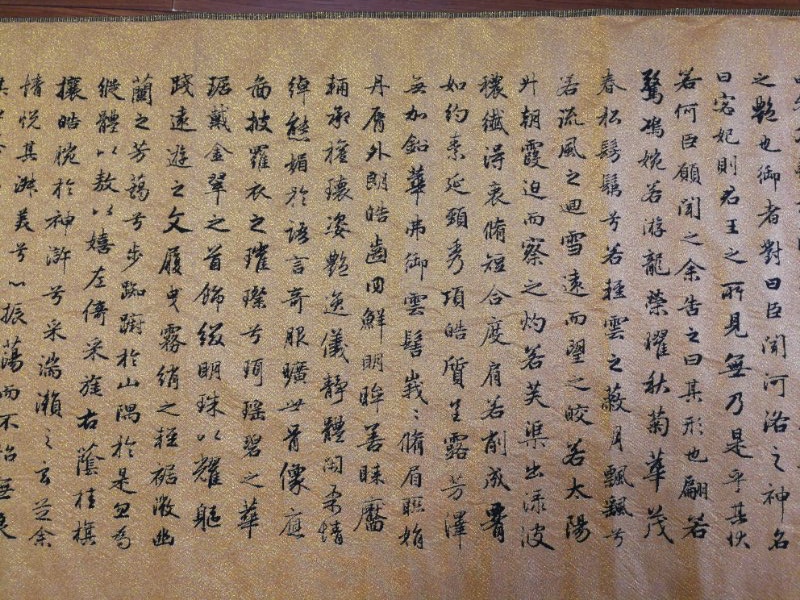 之艷也御者對曰臣聞河洛之神名
曰宓妃則君王之所見無乃是乎其狀
若何臣願聞之余告之曰其形也翩若
驚鴻婉若游龍榮耀秋菊華茂
春松髣髴兮若輕雲之蔽月飄颻兮
若流風之迴雪遠而望之皎若太陽
升朝霞迫而察之灼若芙渠出淥波
穠纖得衷脩短合度肩若削成腰
如約素延頸秀項皓質呈露芳澤
無加鉛華弗御雲髻峩〻脩眉聯娟
丹脣外朗皓齒內鮮明眸善睞靨
輔承權瓌姿艷逸儀靜體閑柔情
綽態媚於語言奇服曠世骨像應
圖披羅衣之璀璨兮珥瑤碧之華
琚戴金翠之首飾綴明珠以耀軀
踐遠遊之文履曳霧綃之輕裾微幽
蘭之芳藹兮步踟躕於山隅於是忽焉
縱體以敖以嬉左倚采旄右蔭桂旗
攘皓腕於神滸兮采湍瀨之玄芝余
情悅其淑美兮心振蕩而不怡無良